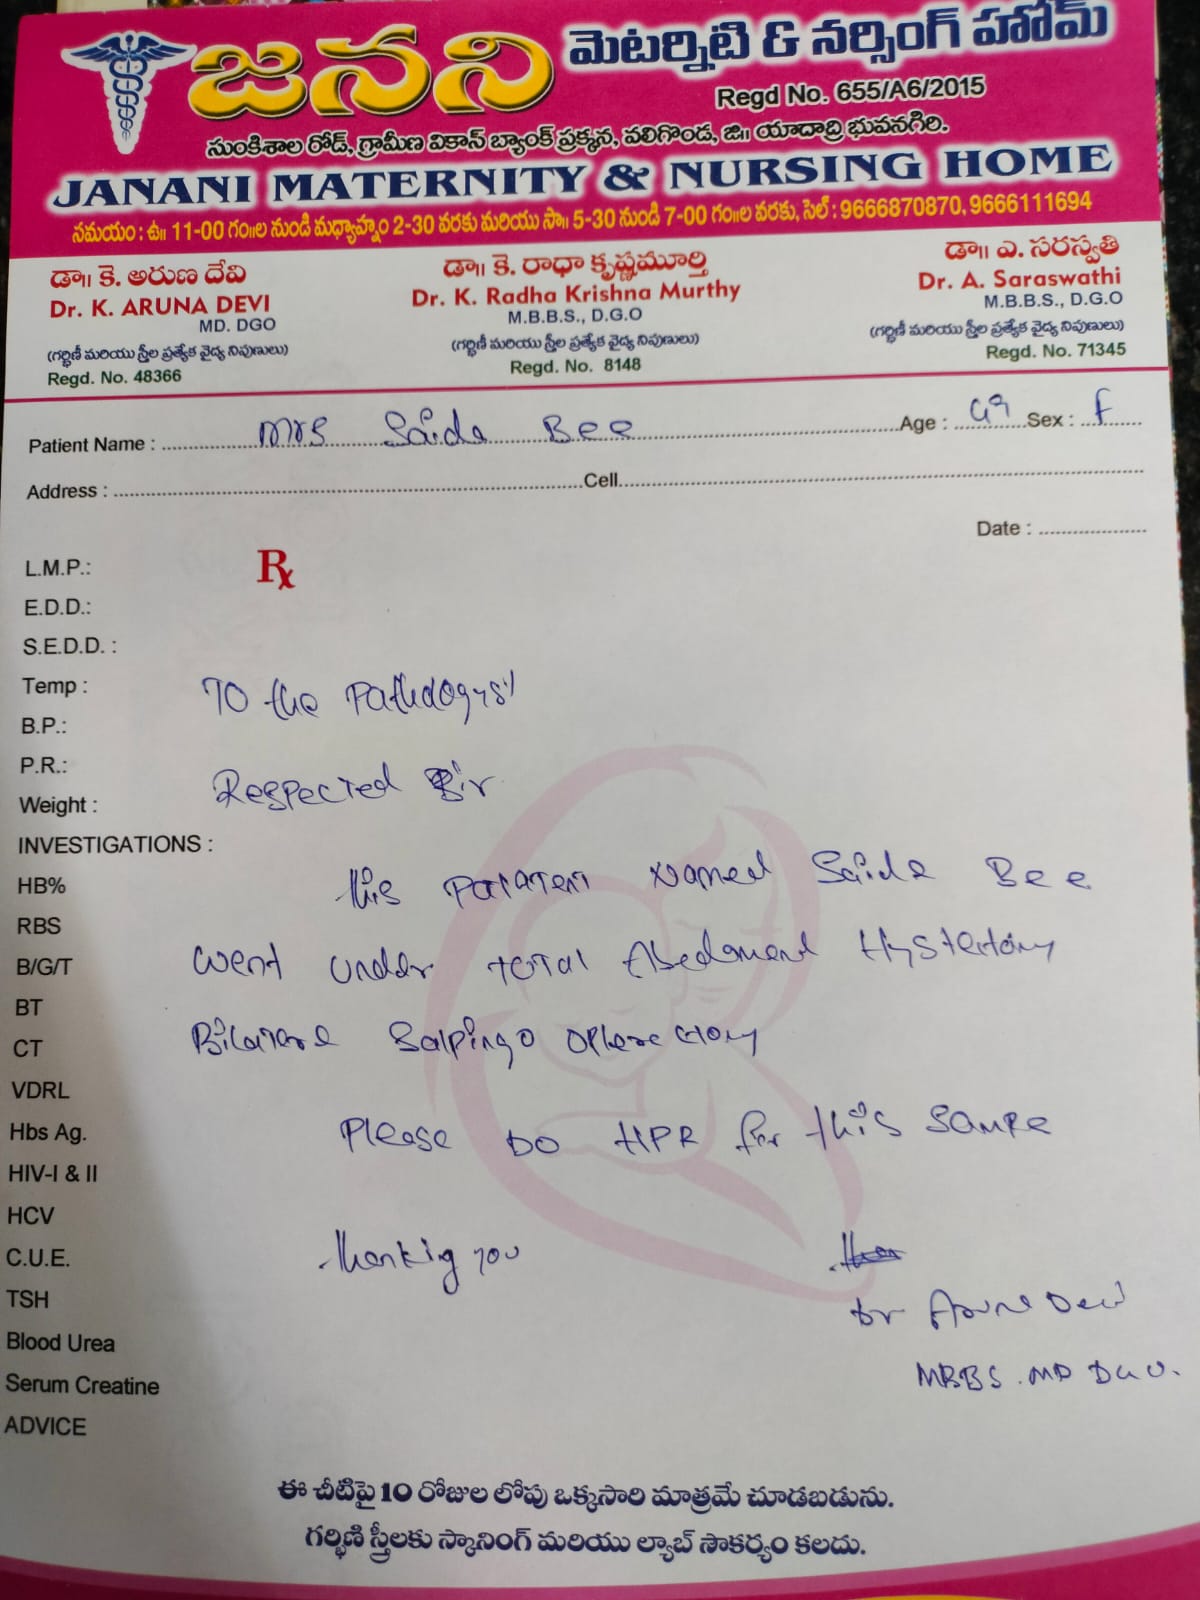 జనని మెటర్నిటి & నర్సింగ్ హోమ్
Regd No. 655/A6/2015
సుంకిశాల రోడ్, గ్రామీణ వికాస్ బ్యాంక్ ప్రక్కన, వలిగొండ, జి॥ యాదాద్రి భువనగిరి.
JANANI MATERNITY & NURSING HOME
సమయం : ఉ॥ 11-00 గం॥ల నుండి మధ్యాహ్నం 2-30 వరకు మరియు సా॥ 5-30 నుండి 7-00 గం॥ల వరకు, సెల్ : 9666870870, 9666111694
డా॥ కె. అరుణ దేవి
Dr. K. ARUNA DEVI
MD. DGO
(గర్భిణీ మరియు స్త్రీల ప్రత్యేక వైద్య నిపుణులు)
Regd. No. 48366
డా॥ కె. రాధా కృష్ణమూర్తి
Dr. K. Radha Krishna Murthy
M.B.B.S., D.G.O
(గర్భిణీ మరియు స్త్రీల ప్రత్యేక వైద్య నిపుణులు)
Regd. No. 8148
డా॥ ఎ. సరస్వతి
Dr. A. Saraswathi
M.B.B.S., D.G.O
(గర్భిణీ మరియు స్త్రీల ప్రత్యేక వైద్య నిపుణులు)
Regd. No. 71345
Patient Name : Mrs Saida Bee Age : 49 Sex : F
Address : Cell
Date :
L.M.P.: Rx
E.D.D.:
S.E.D.D. :
Temp : TO the Pathdogyst
B.P.:
P.R.:
Weight : Respected Sir
INVESTIGATIONS :
HB% this Patatent Named Saida Bee
RBS
B/G/T went under total Abedoment Hystertomy
BT
CT Bilatare Salpingo
VDRL
Hbs Ag. Please DO HPR for this Sample
HIV-I & II
HCV
C.U.E. thanking you
TSH Dr Aruna Devi
Blood Urea
Serum Creatine MBBS. MD DGO.
ADVICE
ఈ చీటిపై 10 రోజుల లోపు ఒక్కసారి మాత్రమే చూడబడును.
గర్భిణి స్త్రీలకు స్కానింగ్ మరియు ల్యాబ్ సౌకర్యం కలదు.